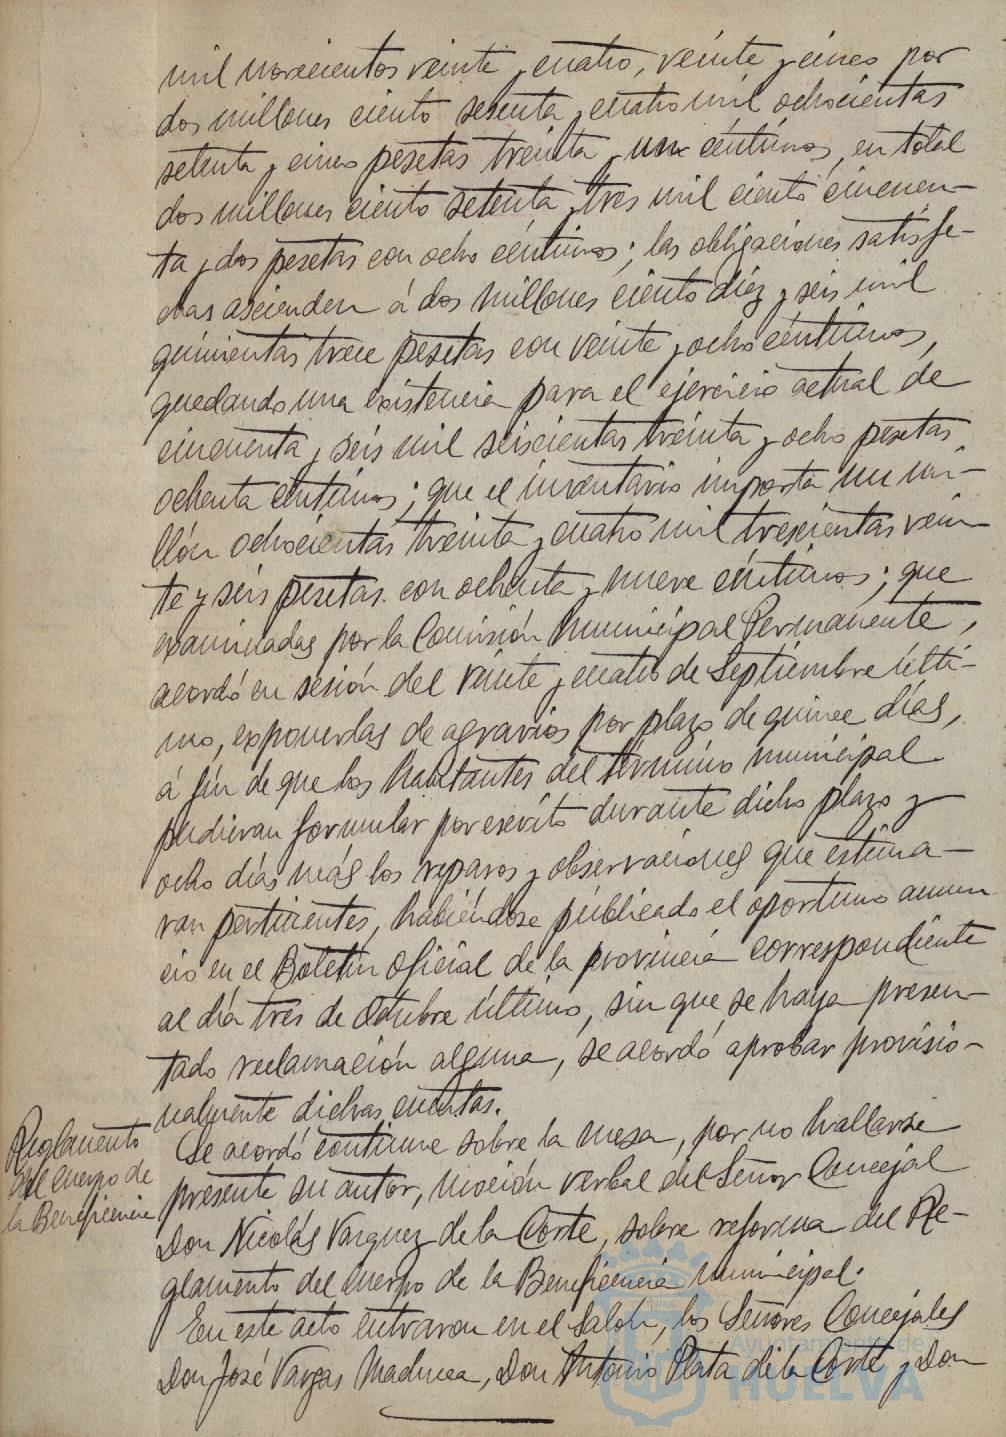 mil novecientos veinte y cuatro, veinte y cinco por
dos millones ciento sesenta y cuatro mil ochocientas
setenta y cinco pesetas treinta y un céntimos, en total
dos millones ciento setenta y tres mil ciento cincuen-
ta y dos pesetas con ocho céntimos; las obligaciones satisfe-
chas ascienden á dos millones ciento diez y seis mil
quinientas trece pesetas con veinte y ocho céntimos,
quedando una existencia para el ejercicio actual de
cincuenta y seis mil seiscientas treinta y ocho pesetas
ochenta céntimos; que el inventario importa un mi-
llón ochocientas treinta y cuatro mil trescientas vein-
te y seis pesetas con ochenta y nueve céntimos; que
examinadas por la Comisión Municipal Permanente,
acordó en sesión del veinte y cuatro de Septiembre últi-
mo, exponerlas de agravios por plazo de quince días,
á fin de que los habitantes del término municipal
pudieran formular por escrito durante dicho plazo y
ocho días más los reparos y observaciones que estima-
ran pertinentes, habiéndose publicado el oportuno anun
cio en el Boletín Oficial de la provincia correspondiente
al día tres de Octubre último, sin que se haya presen-
tado reclamación alguna, se acordó aprobar provisio-
nalmente dichas cuentas.
Reglamento
del Cuerpo de
la Beneficencia
Se acordó continue sobre la mesa, por no hallarse
presente su autor, moción verbal del Señor Concejal
Don Nicolás Vazquez de la Corte, sobre reforma del Re-
glamento del Cuerpo de la Beneficencia municipal.
En este acto entraron en el Salón, los Señores Concejales
Don José Vargas Machuca, Don Antonio Plata de la Corte y Don
Ayuntamiento de
HUELVA